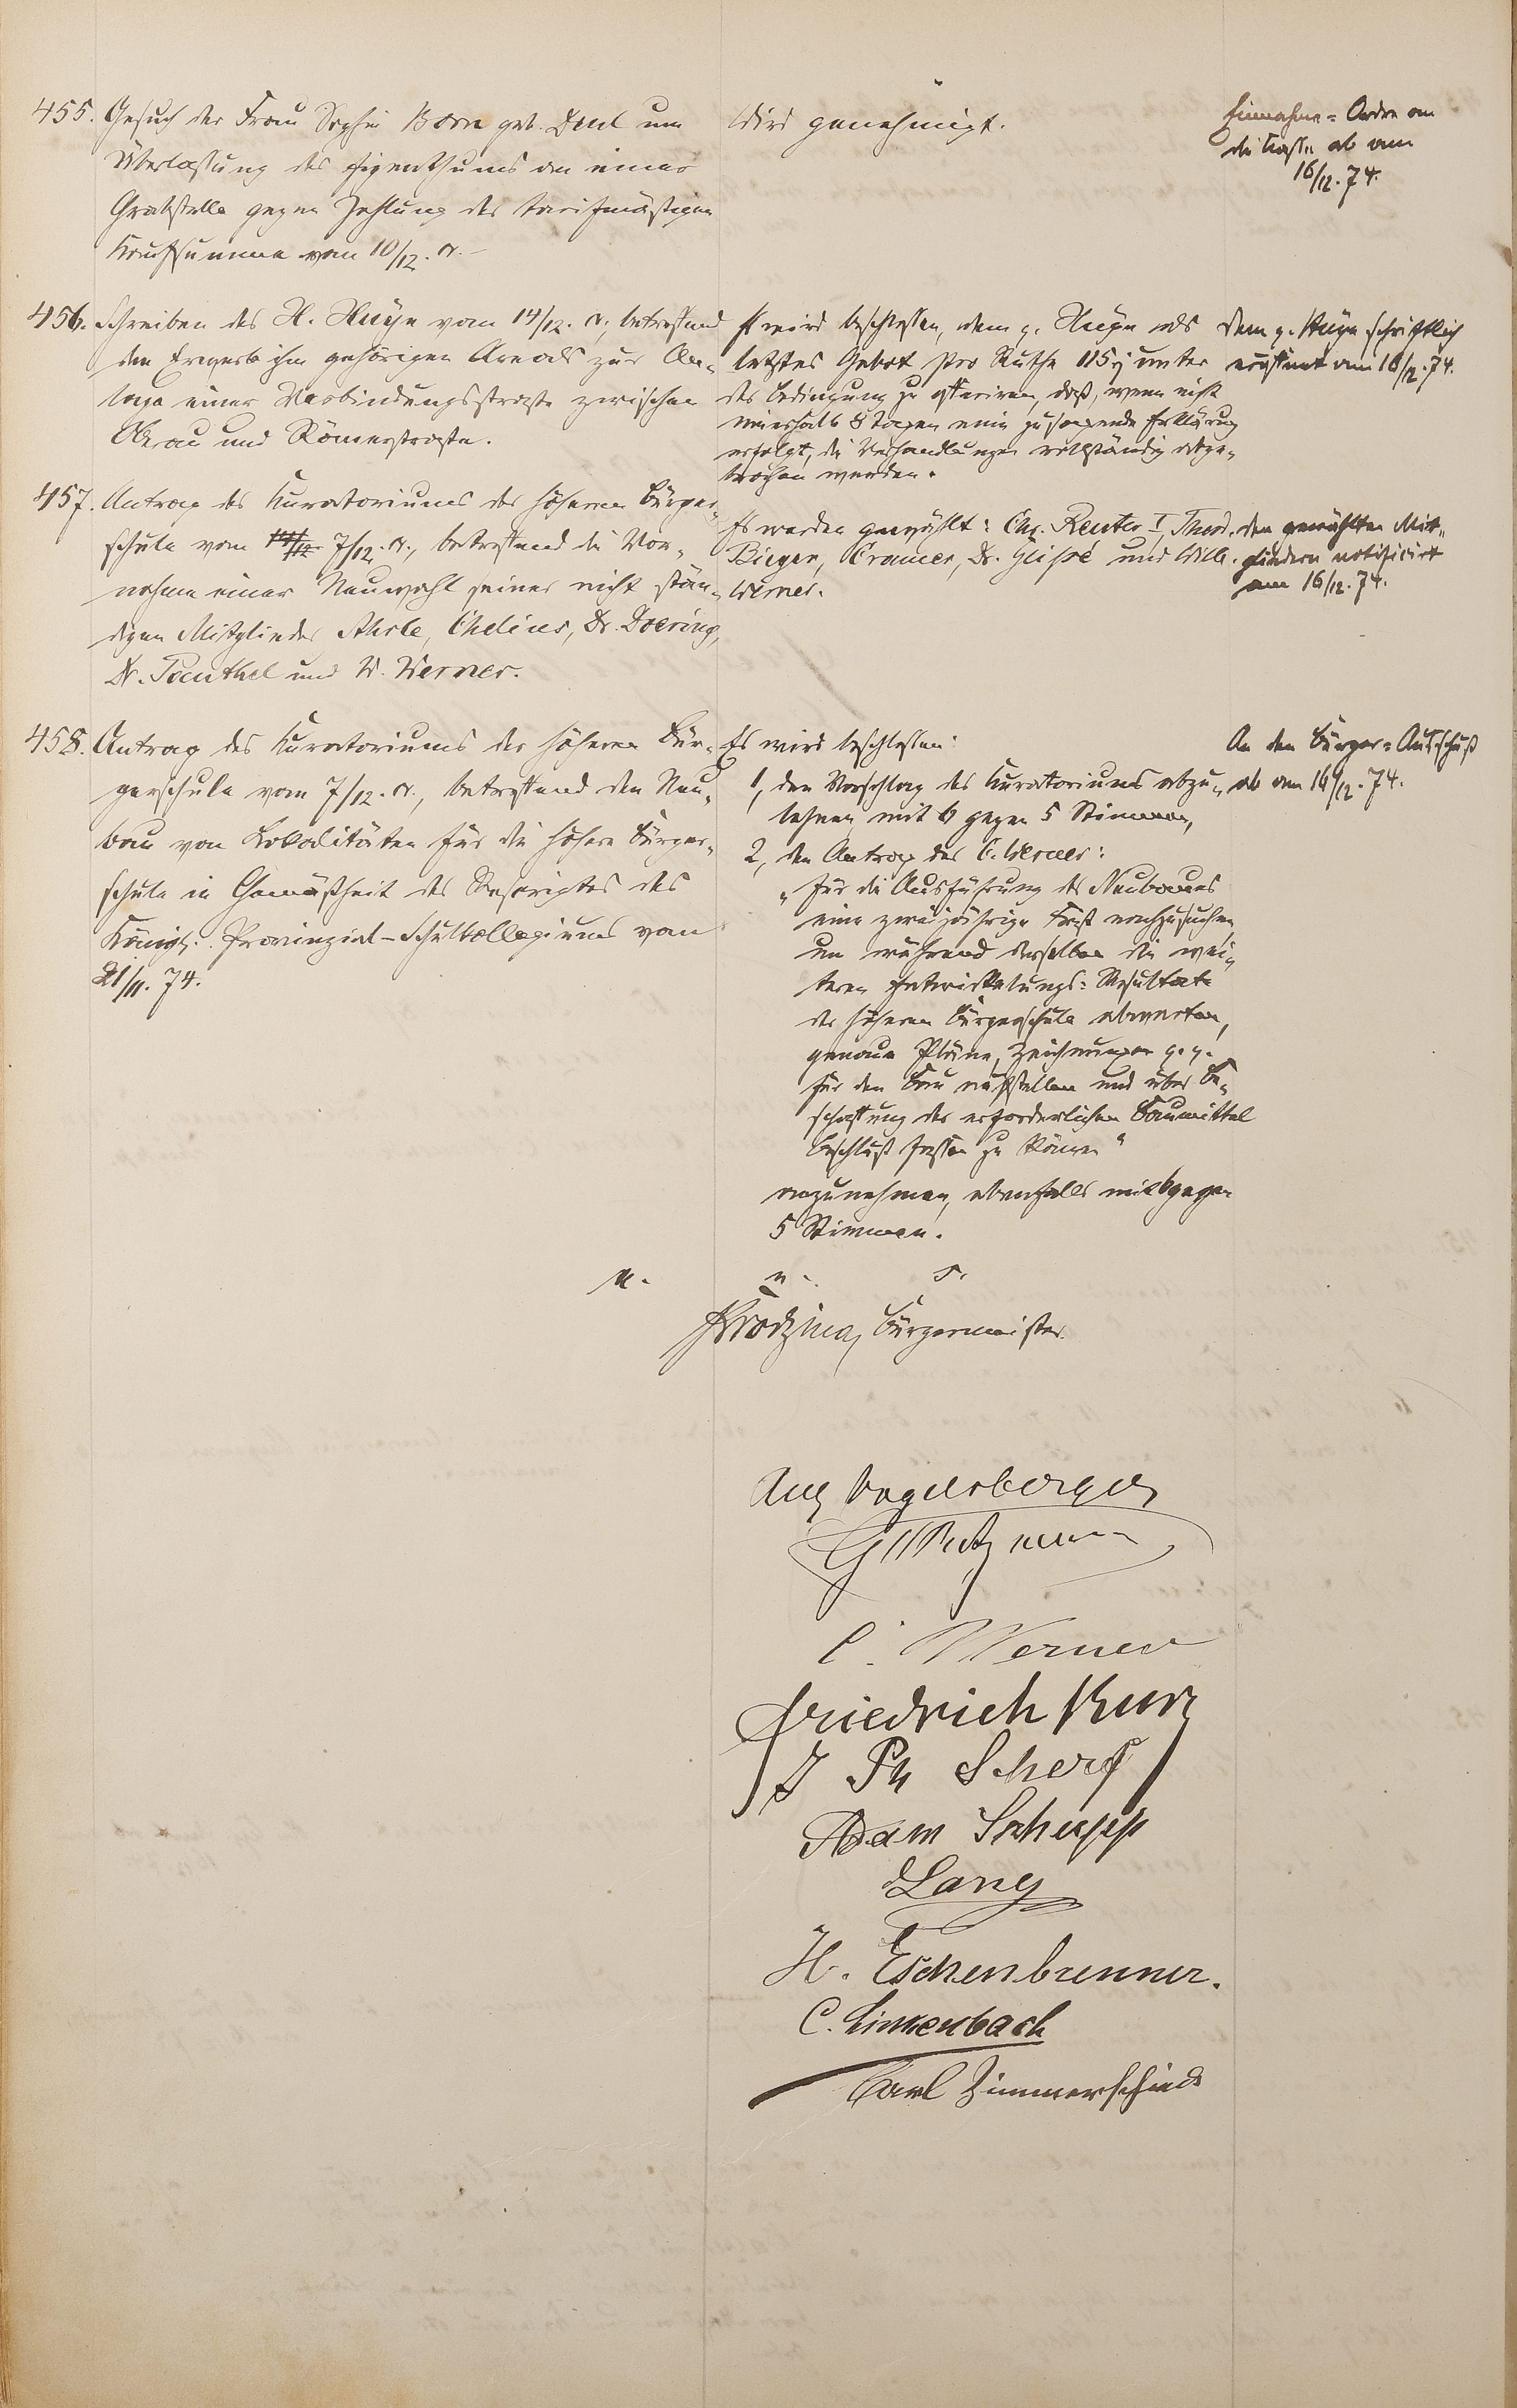 455. Gesuch der Frau Sophie Born geb. Deul um
Überlassung des Eigenthums an einer
Grabstelle gegen Zahlung der tarifmäßigen
Kaufsumme vom 10/12. cr.
Wird genehmigt.
Einnahme=Ordre an
die Casse ab am
16/12. 74.
456. Schreiben des H. Heyn vom 14/12. cr., betreffend
den Erwerb ihm gehörigen Areals zur An-
lage einer Verbindungsstraße zwischen
Oberau und Römerstraße.
Es wird beschlossen, dem p. Heyn als
letztes Gebot pro Ruthe 115 unter
der Bedingung zu offeriren, daß, wenn nicht
innerhalb 8 Tagen eine zusagende Erklärung
erfolgt, die Verhandlungen vollständig abge-
brochen werden.
Dem p. Heyn schriftlich
eröffnet am 16/12. 74.
457. Antrag des Curatoriums der höheren Bürger-
schule vom 7/12. cr., betreffend die Vor-
nahme einer Neuwahl seiner nicht stän-
digen Mitglieder Ahrle, Chelius, Dr. Doering,
Dr. Penthel und W. Werner.
Es werden gewählt: Chr. Reuter I, Theod.
Bieger, Cramer, Dr. Gissé und Wilh.
Werner.
den gewählten Mit-
gliedern notificirt
am 16/12. 74.
458. Antrag des Curatoriums der höheren Bür-
gerschule vom 7/12. cr., betreffend den Neu-
bau von Lokalitäten für die höhere Bürger-
schule in Gemäßheit des Rescriptes des
Königl. Provinzial-Schulkollegiums vom
21/11. 74.
Es wird beschlossen:
1, den Vorschlag des Curatoriums abzu-
lehnen mit 6 gegen 5 Stimmen,
2, den Antrag des C. Werner:
"für die Ausführung des Neubaues
eine zweijährige Frist nachzusuchen
um während derselben die wei-
teren Entwickelungs=Resultate
der höheren Bürgerschule abwarten,
genaue Pläne, Zeichnungen p. p.
für den Bau aufstellen und über Be-
schaffung der erforderlichen Baumittel
Beschluß fassen zu können"
anzunehmen, ebenfalls mit 6 gegen
5 Stimmen.
An den Bürger=Ausschuß
ab am 16/12. 74.
u.
Bürgermeister
Aug Vogelsberger
C. Werner
Friedrich Kurz
J Ph Scherf
Adam Schupp
Lang
H. Eschenbrenner.
C. Linkenbach
Carl Zimmerschied